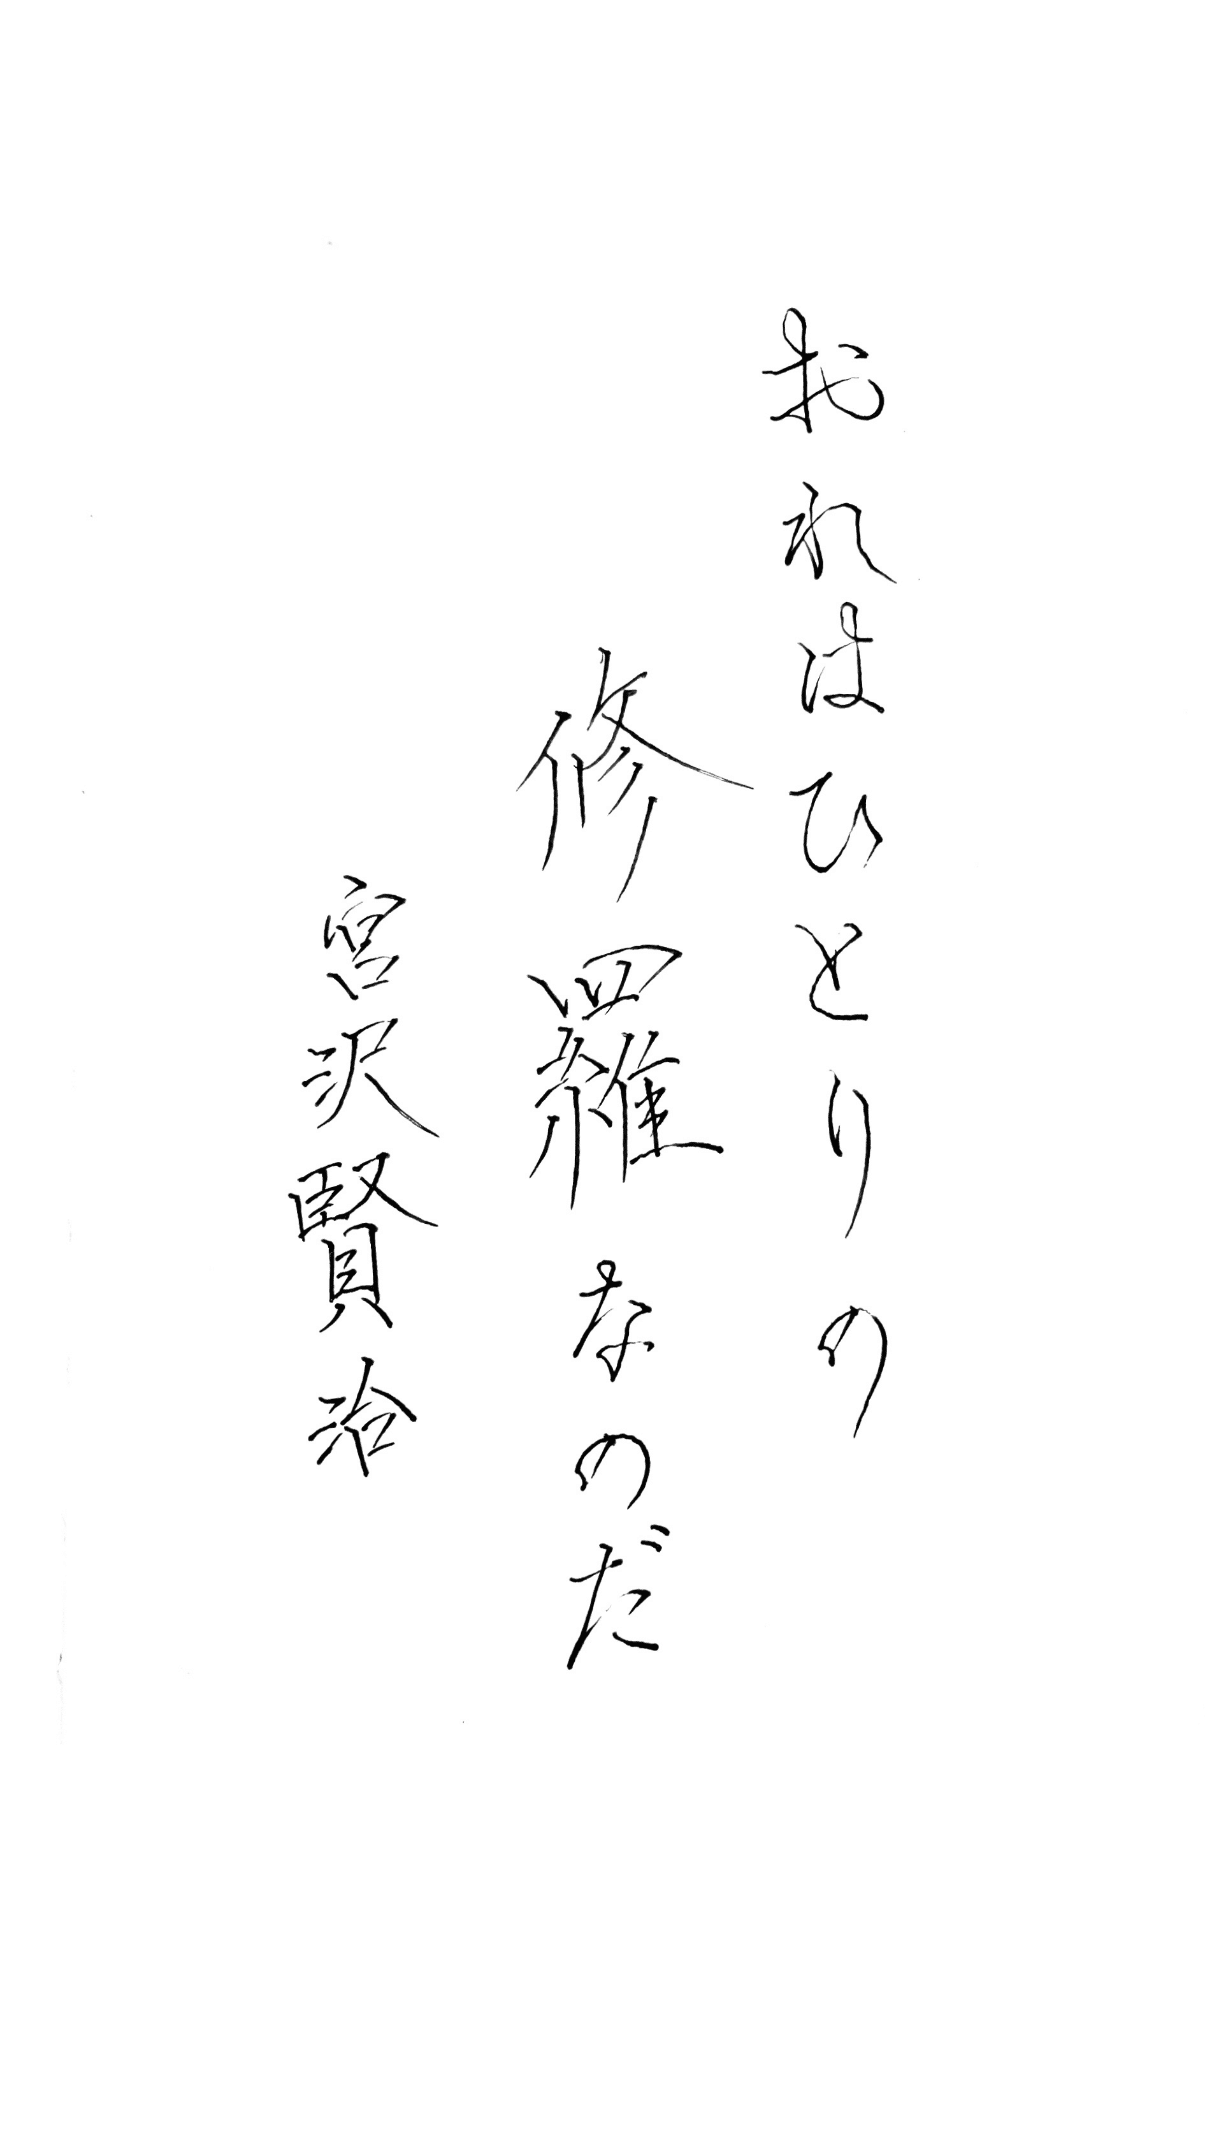 おれはひとりの
修羅なのだ
宮沢賢治